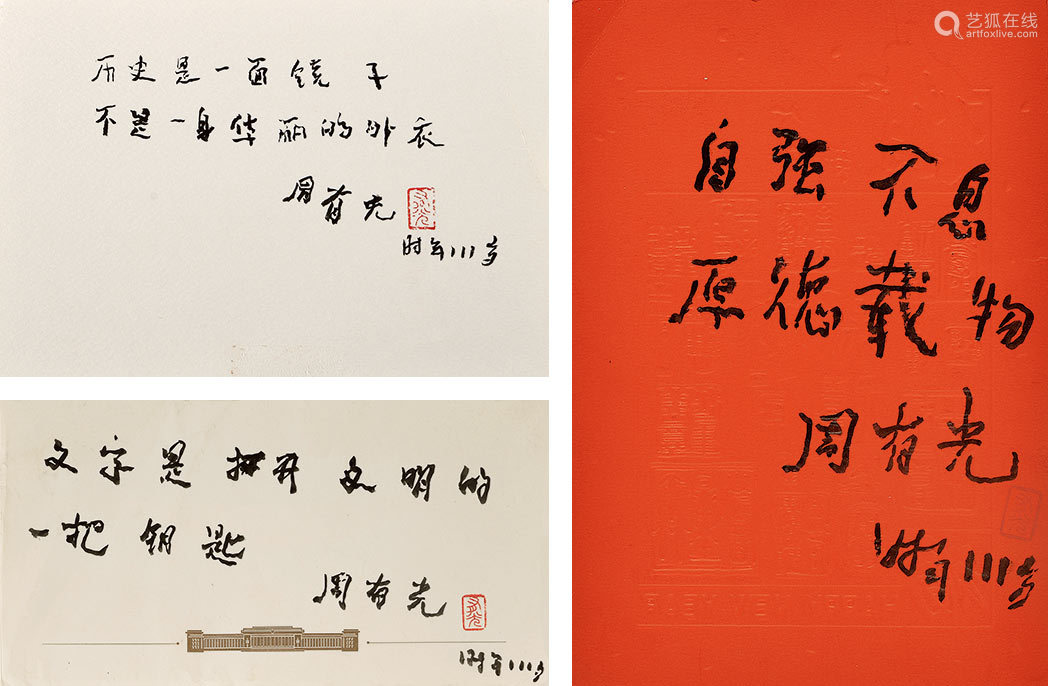 历史是一面镜子
不是一身华丽的外衣
周有光
时年111岁
文字是打开文明的
一把钥匙
周有光
时年111岁
艺狐在线
artfoxlive.com
自强不息
厚德载物
周有光
时年111岁